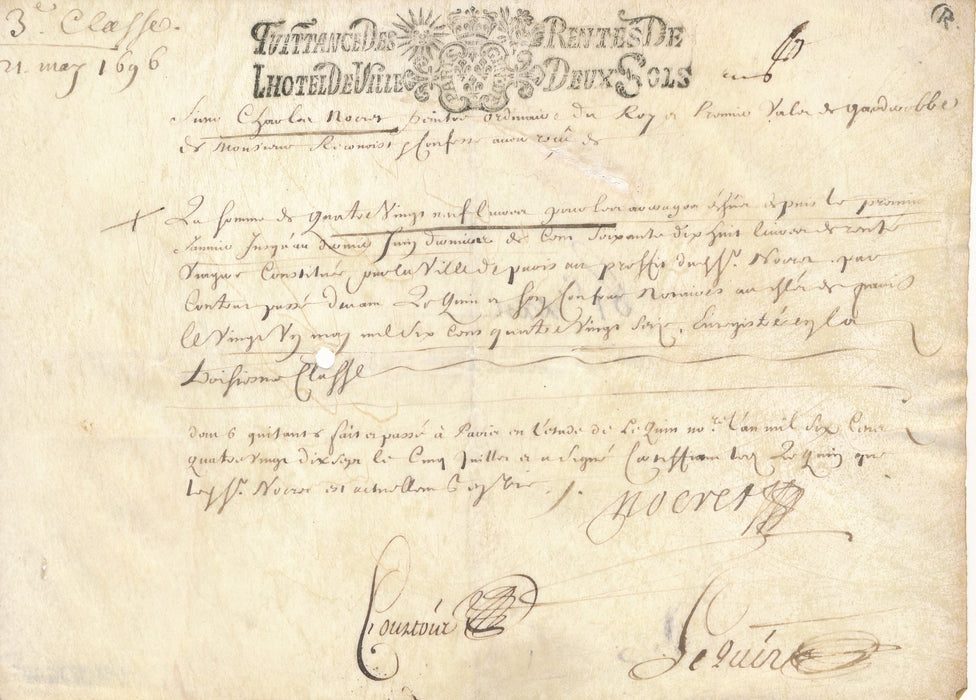 3e Classe.
21 may 1696
QUITTANCE DES RENTES DE
LHOTEL DE VILLE DEUX SOLS
PARIS
R
Sieur Charles Nocret peintre ordinaire du Roy et Premier Valet de Garderobbe
de Monsieur Reconoist confesse avoir reçu de
La somme de quatre Vingt neuf livres pour les arrerages échus depuis le premier
Janvier Jusqu'au dernier Juin dernier de Cent Soixante dix huit livres de rente
Viagere Constituée par la Ville de paris au proffit dud Sr. Nocret par
Contrat passé devant Le Quin et son Confrere Notaires au chlet de paris
le Vingt Un may mil six Cens quatre Vingt Seize, Enregistré en la
troisieme Classe
dont quittant fait et passé à Paris en l'etude de Le Quin nore l'an mil six Cens
quatre vingt dix sept le Cinq Juillet et a signé Certiffiant led Le Quin que
led Sr. Nocret est actuellement
Nocret
Courtois
Le quin